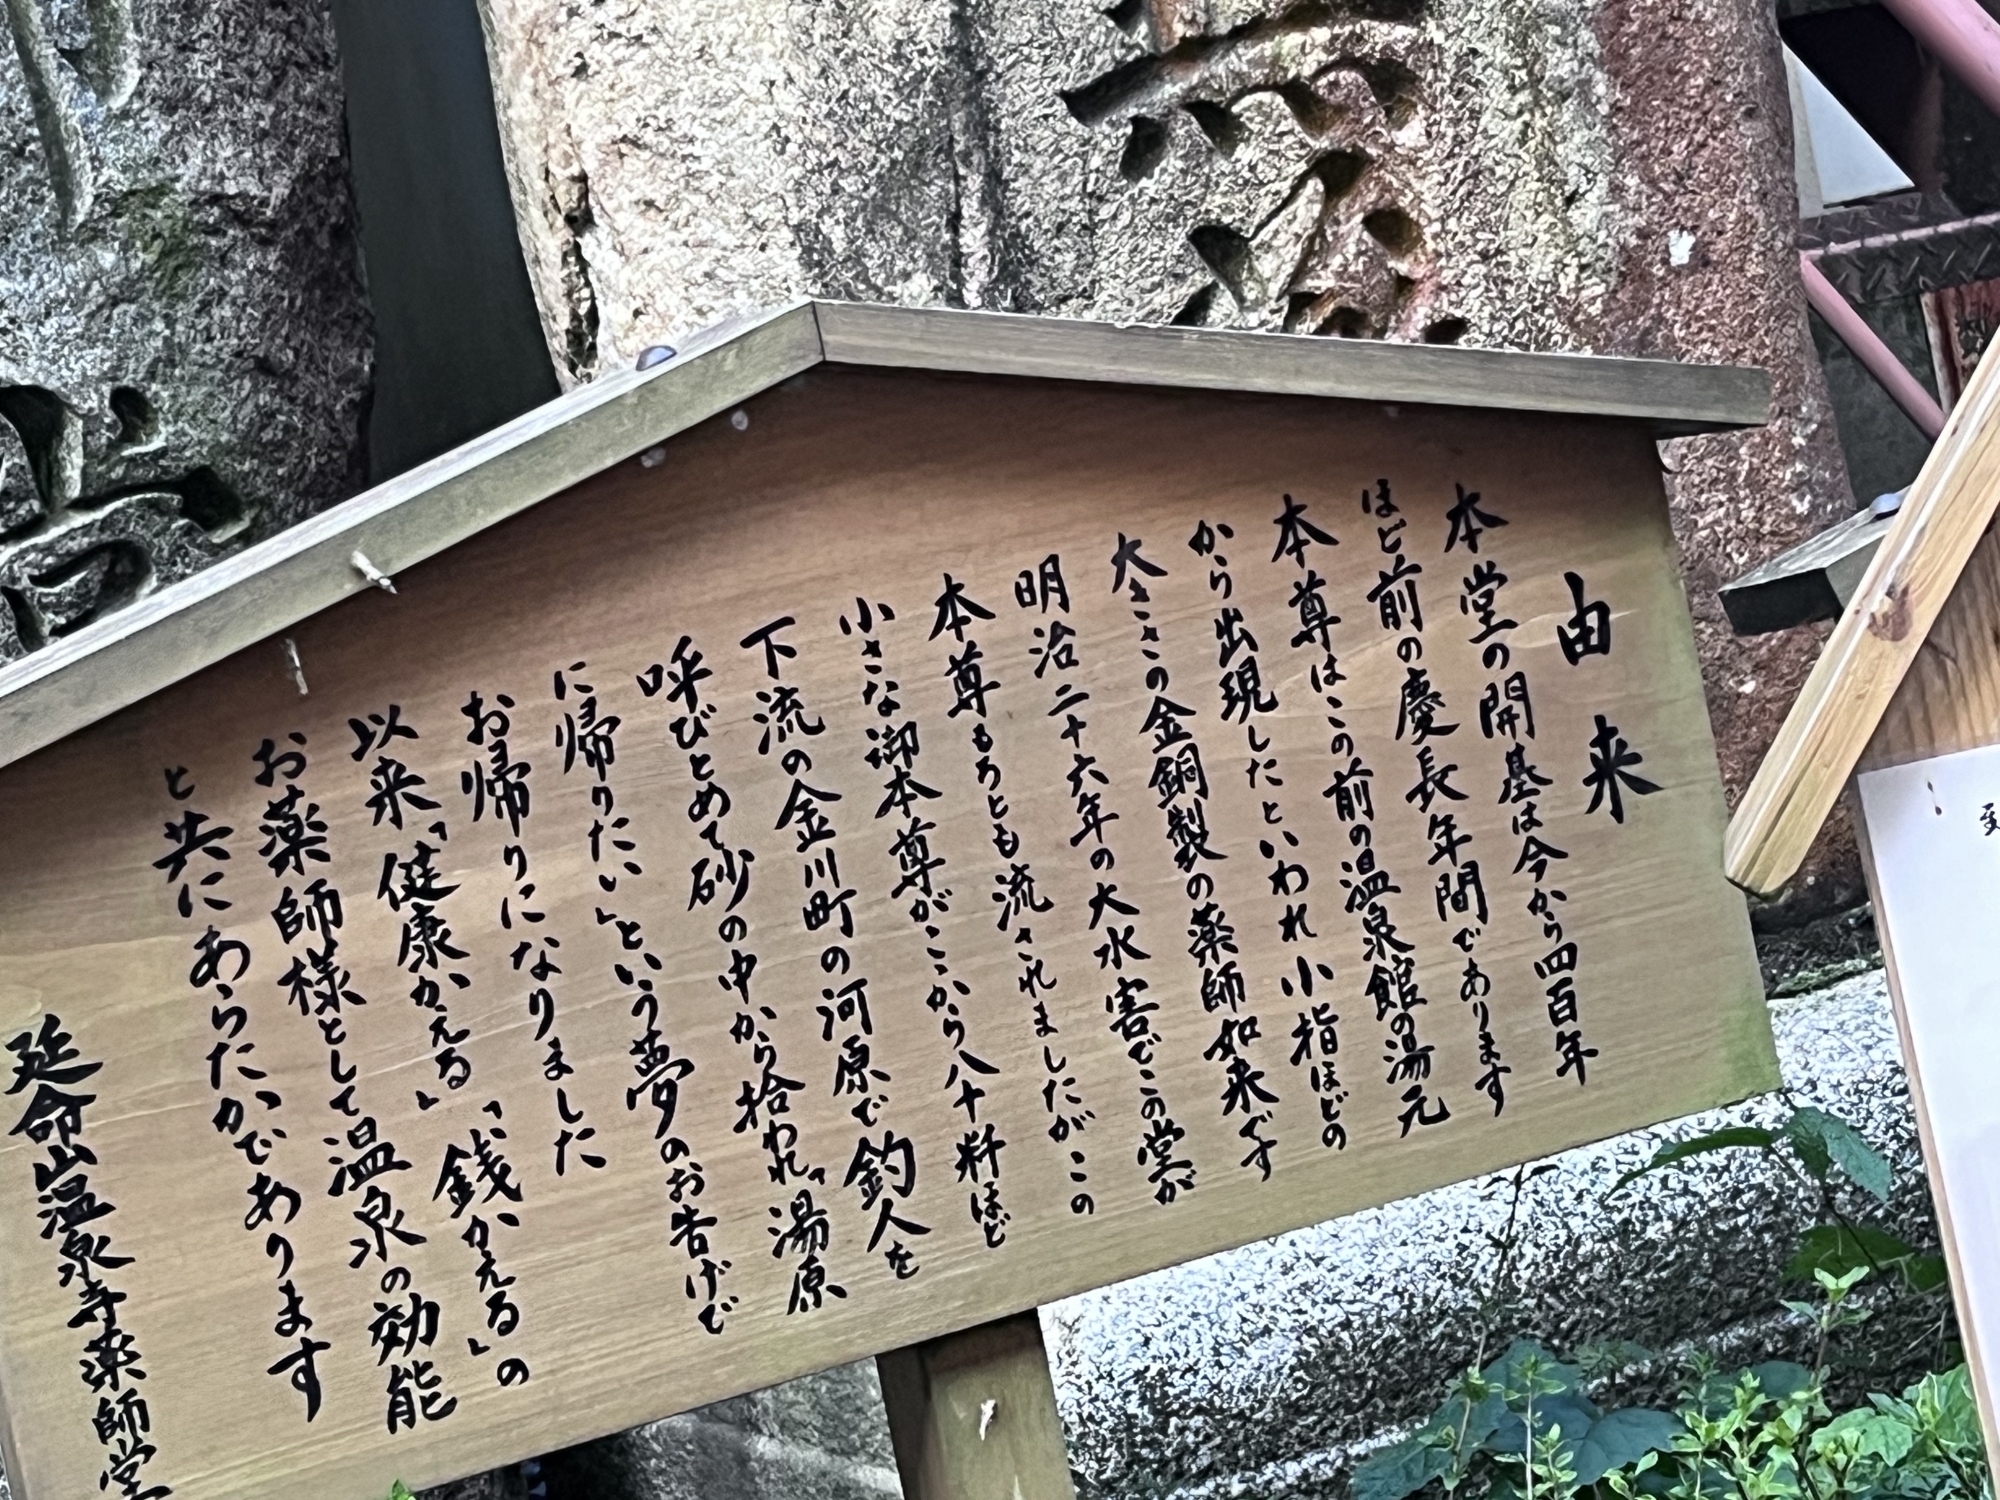 由来
本堂の開基は今から四百年
ほど前の慶長年間であります
本尊はこの前の温泉館の湯元
から出現したといわれ小指ほどの
大きさの金銅製の薬師如来です
明治二十六年の大水害でこの堂が
本尊もろとも流されましたがこの
小さな御本尊がここから八十粁ほど
下流の金川町の河原で釣人を
呼びとめて砂の中から拾われ「湯原
に帰りたい」という夢のお告げで
お帰りになりました
以来「健康かえる」「銭かえる」の
お薬師様として温泉の効能
と共にあらたかであります
延命山温泉寺薬師堂